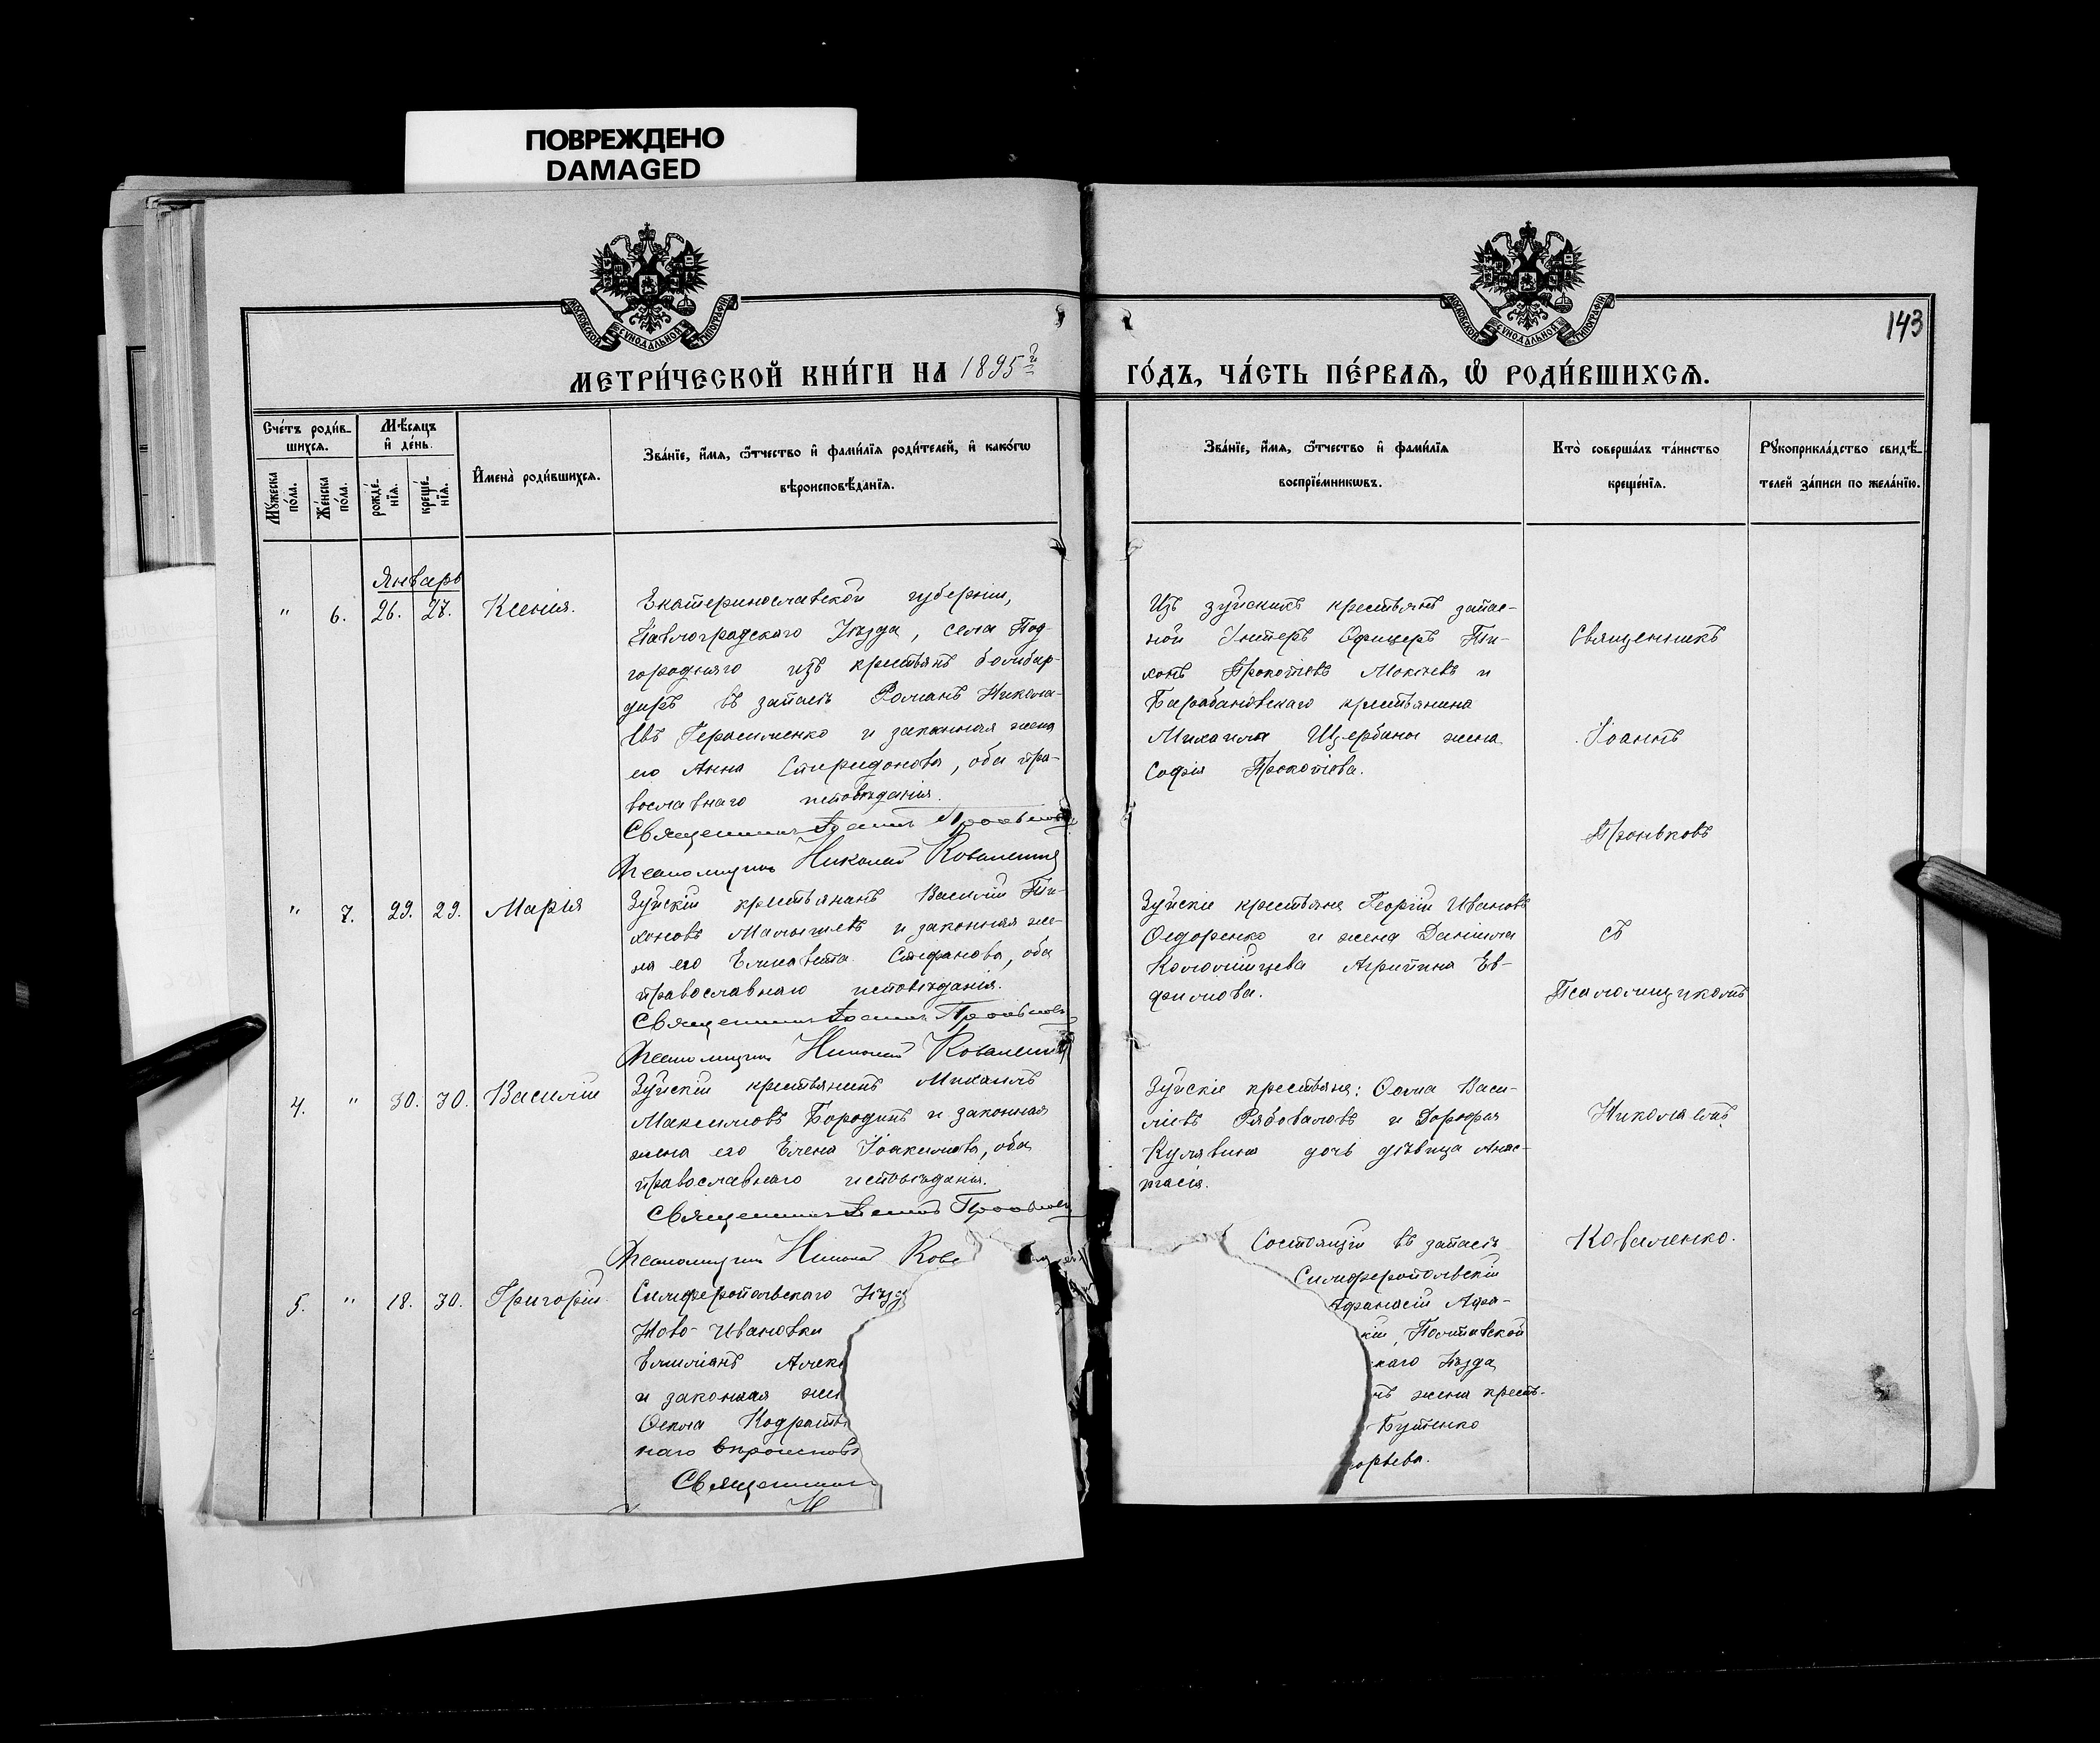 ПОВРЕЖДЕНО
DAMAGED
МОСКОВСКОЙ СѴНОДАЛЬНОЙ ТИПОГРАФІИ
МОСКОВСКОЙ СѴНОДАЛЬНОЙ ТИПОГРАФІИ
143
МЕТРИ́ЧЕСКОЙ КНИ́ГИ НА 1895 г.
ГО́ДЪ, ЧА́СТЬ ПЕ́РВАѦ, Ѡ҆ РОДИ́ВШИХСѦ.
Сче́тъ роди́в-
шихсѧ.
Мꙋ́жеска по́ла.
Же́нска по́ла.
Мѣ́сѧцъ
и҆ де́нь.
рожде́-
нїѧ.
креще́-
нїѧ.
И҆мена̀ роди́вшихсѧ.
Зва́нїе, и҆́мѧ, ѻ҆́тчество и҆ фами́лїѧ роди́телей, и҆ како́гѡ
вѣроисповѣ́данїѧ.
Зва́нїе, и҆́мѧ, ѻ҆́тчество и҆ фами́лїѧ
воспрїе́мникѡвъ.
Кто̀ соверша́лъ та́инство
креще́нїѧ.
Рꙋкоприкла́дство свидѣ́-
телей за́писи по жела́нїю.
Январь
" 6. 26. 27. Ксенія.
Екатеринославской губерніи,
Павлоградскаго Уѣзда, села Под-
городняго изъ крестьянъ бомбар-
диръ въ запасѣ Романъ Никола-
евъ Герасименко и законная жена
его Анна Спиридонова, оба пра-
вославнаго исповѣданія.
Священникъ Іоаннъ Проньковъ
Псаломщикъ Николай Коваленко
Изъ зуйскихъ крестьянъ запас-
ной Унтеръ Офицеръ Ти-
хонъ Прокопіевъ Мокіевъ и
Барабановскаго крестьянина
Михаила Щербины жена
Софія Прокопіева.
Священникъ
Іоаннъ
Проньковъ
" 7. 29. 29. Марія
Зуйскій крестьянинъ Василій Ти-
хоновъ Малышевъ и законная же-
на его Елисавета Стефанова, оба
православнаго исповѣданія.
Священникъ Іоаннъ Проньковъ
Псаломщикъ Николай Коваленко
Зуйскіе крестьяне Георгій Ивановъ
Ѳедоренко и жена Даніила
Коломійцева Агрипина Ев-
фимова.
съ
Псаломщикомъ
4. " 30. 30. Василій
Зуйскій крестьянинъ Михаилъ
Максимовъ Бородинъ и законная
жена его Елена Іоакимова, оба
православнаго исповѣданія.
Священникъ Іоаннъ Проньковъ
Псаломщикъ Николай Кова
Зуйскіе крестьяне: Ѳома Васи-
ліевъ Рябоваловъ и Дорофея
Кулявина дочь дѣвица Анас-
тасія.
Николаемъ
Коваленко.
5. " 18. 30. Григорій
Симферопольскаго Уѣзд
Ново-Ивановки
Емиліанъ Алекс
и законная жен
Ѳекла Кодрать
наго вѣроисповѣ
Священник
Н
Состоящій въ запасѣ
Симферопольскій
Афанасій Афа-
кій, Полтавской
скаго Уѣзда
жена кресть-
Бутенко
орьева.